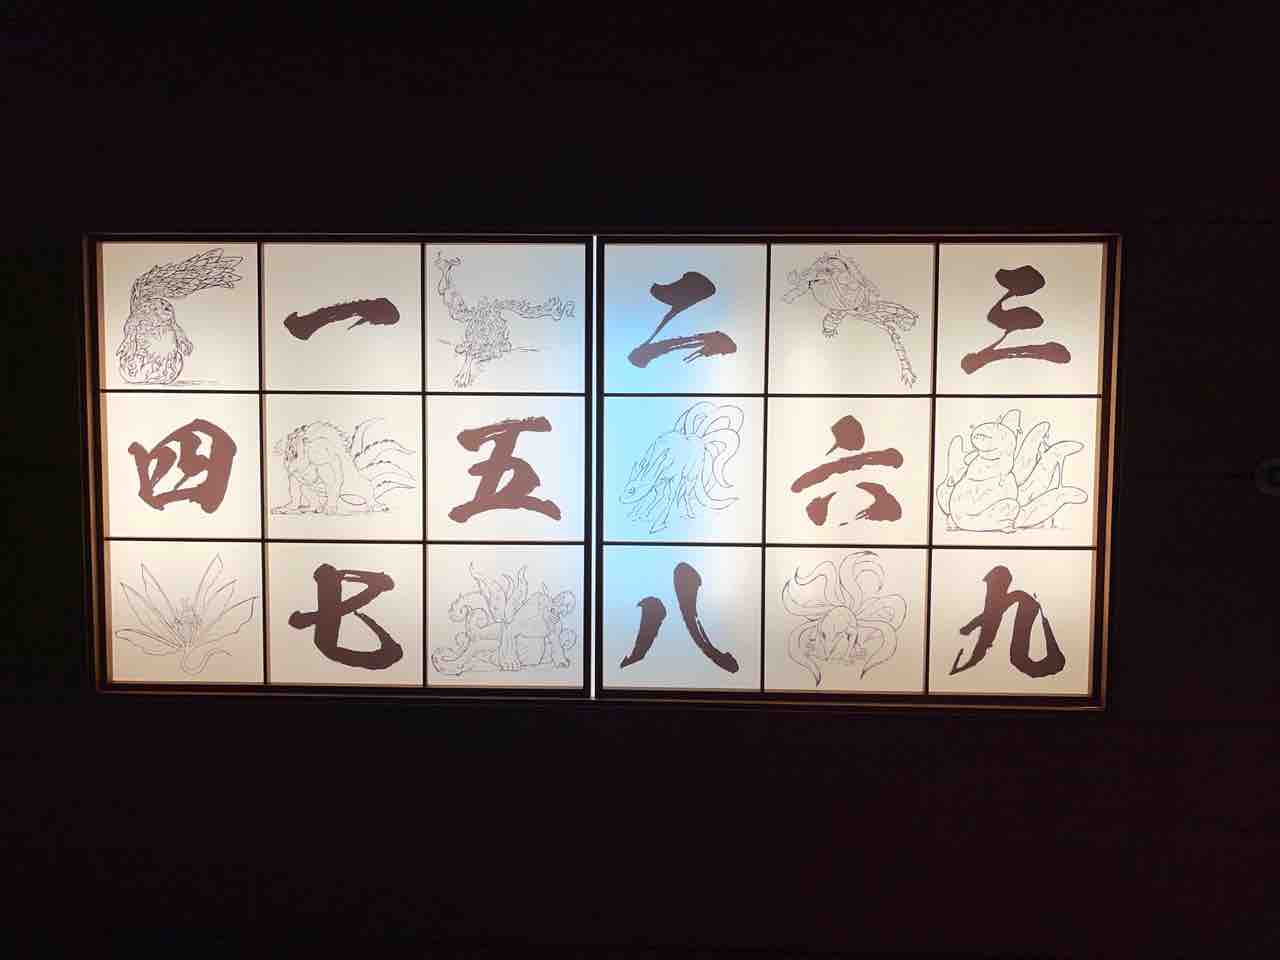 一 二 三
四 五 六
七 八 九